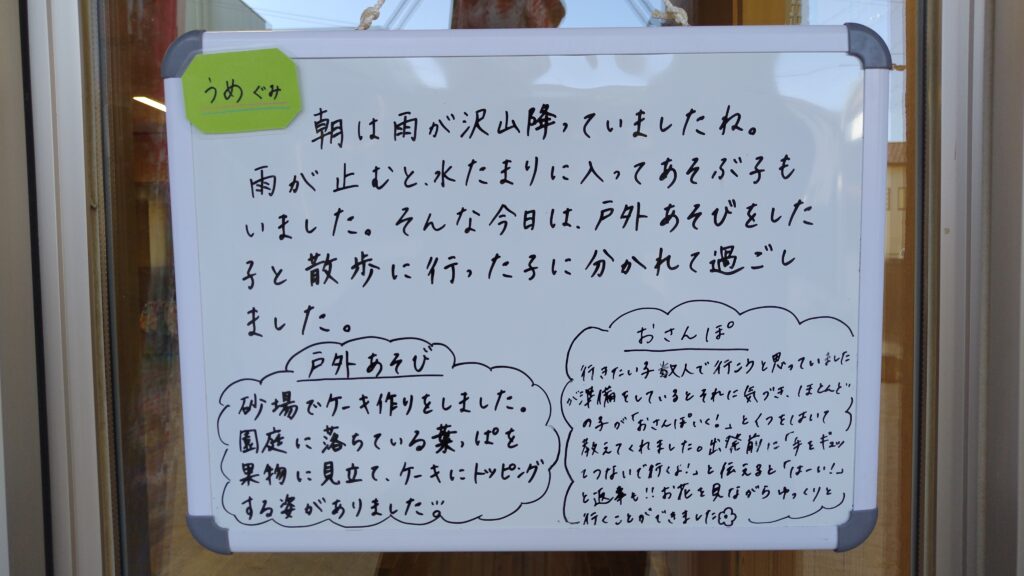 うめぐみ
朝は雨が沢山降っていましたね。
雨が止むと、水たまりに入ってあそぶ子も
いました。そんな今日は、戸外あそびをした
子と散歩に行った子に分かれて過ごし
ました。
戸外あそび
砂場でケーキ作りをしました。
園庭に落ちている葉っぱを
果物に見立て、ケーキにトッピング
する姿がありました
おさんぽ
行きたい子数人で行こうと思っていました
が準備をしているとそれに気づき、ほとんど
の子が「おさんぽいく!」とくつをはいて
教えてくれました。出発前に「手をギュッ
とつないで行くよ!」と伝えると「はーい!」
と返事も!!お花を見ながらゆっくりと
行くことができました